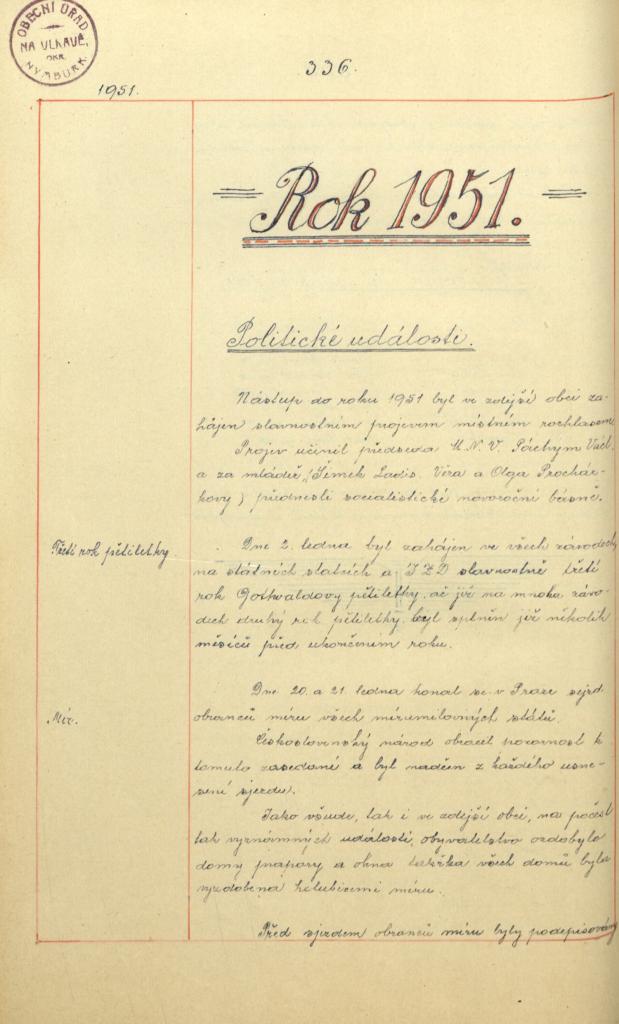 OBECNÍ ÚŘAD
NA VLKAVĚ,
OKR.
NYMBURK
336.
1951.
Rok 1951.
Politické události.
Nástup do roku 1951 byl ve zdejší obci za-
hájen slavnostním projevem místním rozhlasem
Projev učinil předseda M.N.V. Páchym Václ.
a za mládež (Šimek Ladis. Věra a Olga Procház-
kovy) přednesli socialistické novoroční básně.
Třetí rok pětiletky.
Dne 2. ledna byl zahájen ve všech závodech
na státních statcích a JZD slavnostně třetí
rok Gottwaldovy pětiletky, ač již na mnoha závo-
dech druhý rok pětiletky byl splněn již několik
měsíců před ukončením roku.
Mír.
Dne 20. a 21. ledna konal se v Praze sjezd
obránců míru všech mírumilovných států.
Československý národ obracel pozornost k
tomuto zasedání a byl nadšen z každého usne-
sení sjezdu.
Jako všude, tak i ve zdejší obci, na počest
tak významných událostí, obyvatelstvo ozdobylo
domy prapory a okna takřka všech domů byla
vyzdobena holubicemi míru.
Před sjezdem obránců míru byly podepisovány